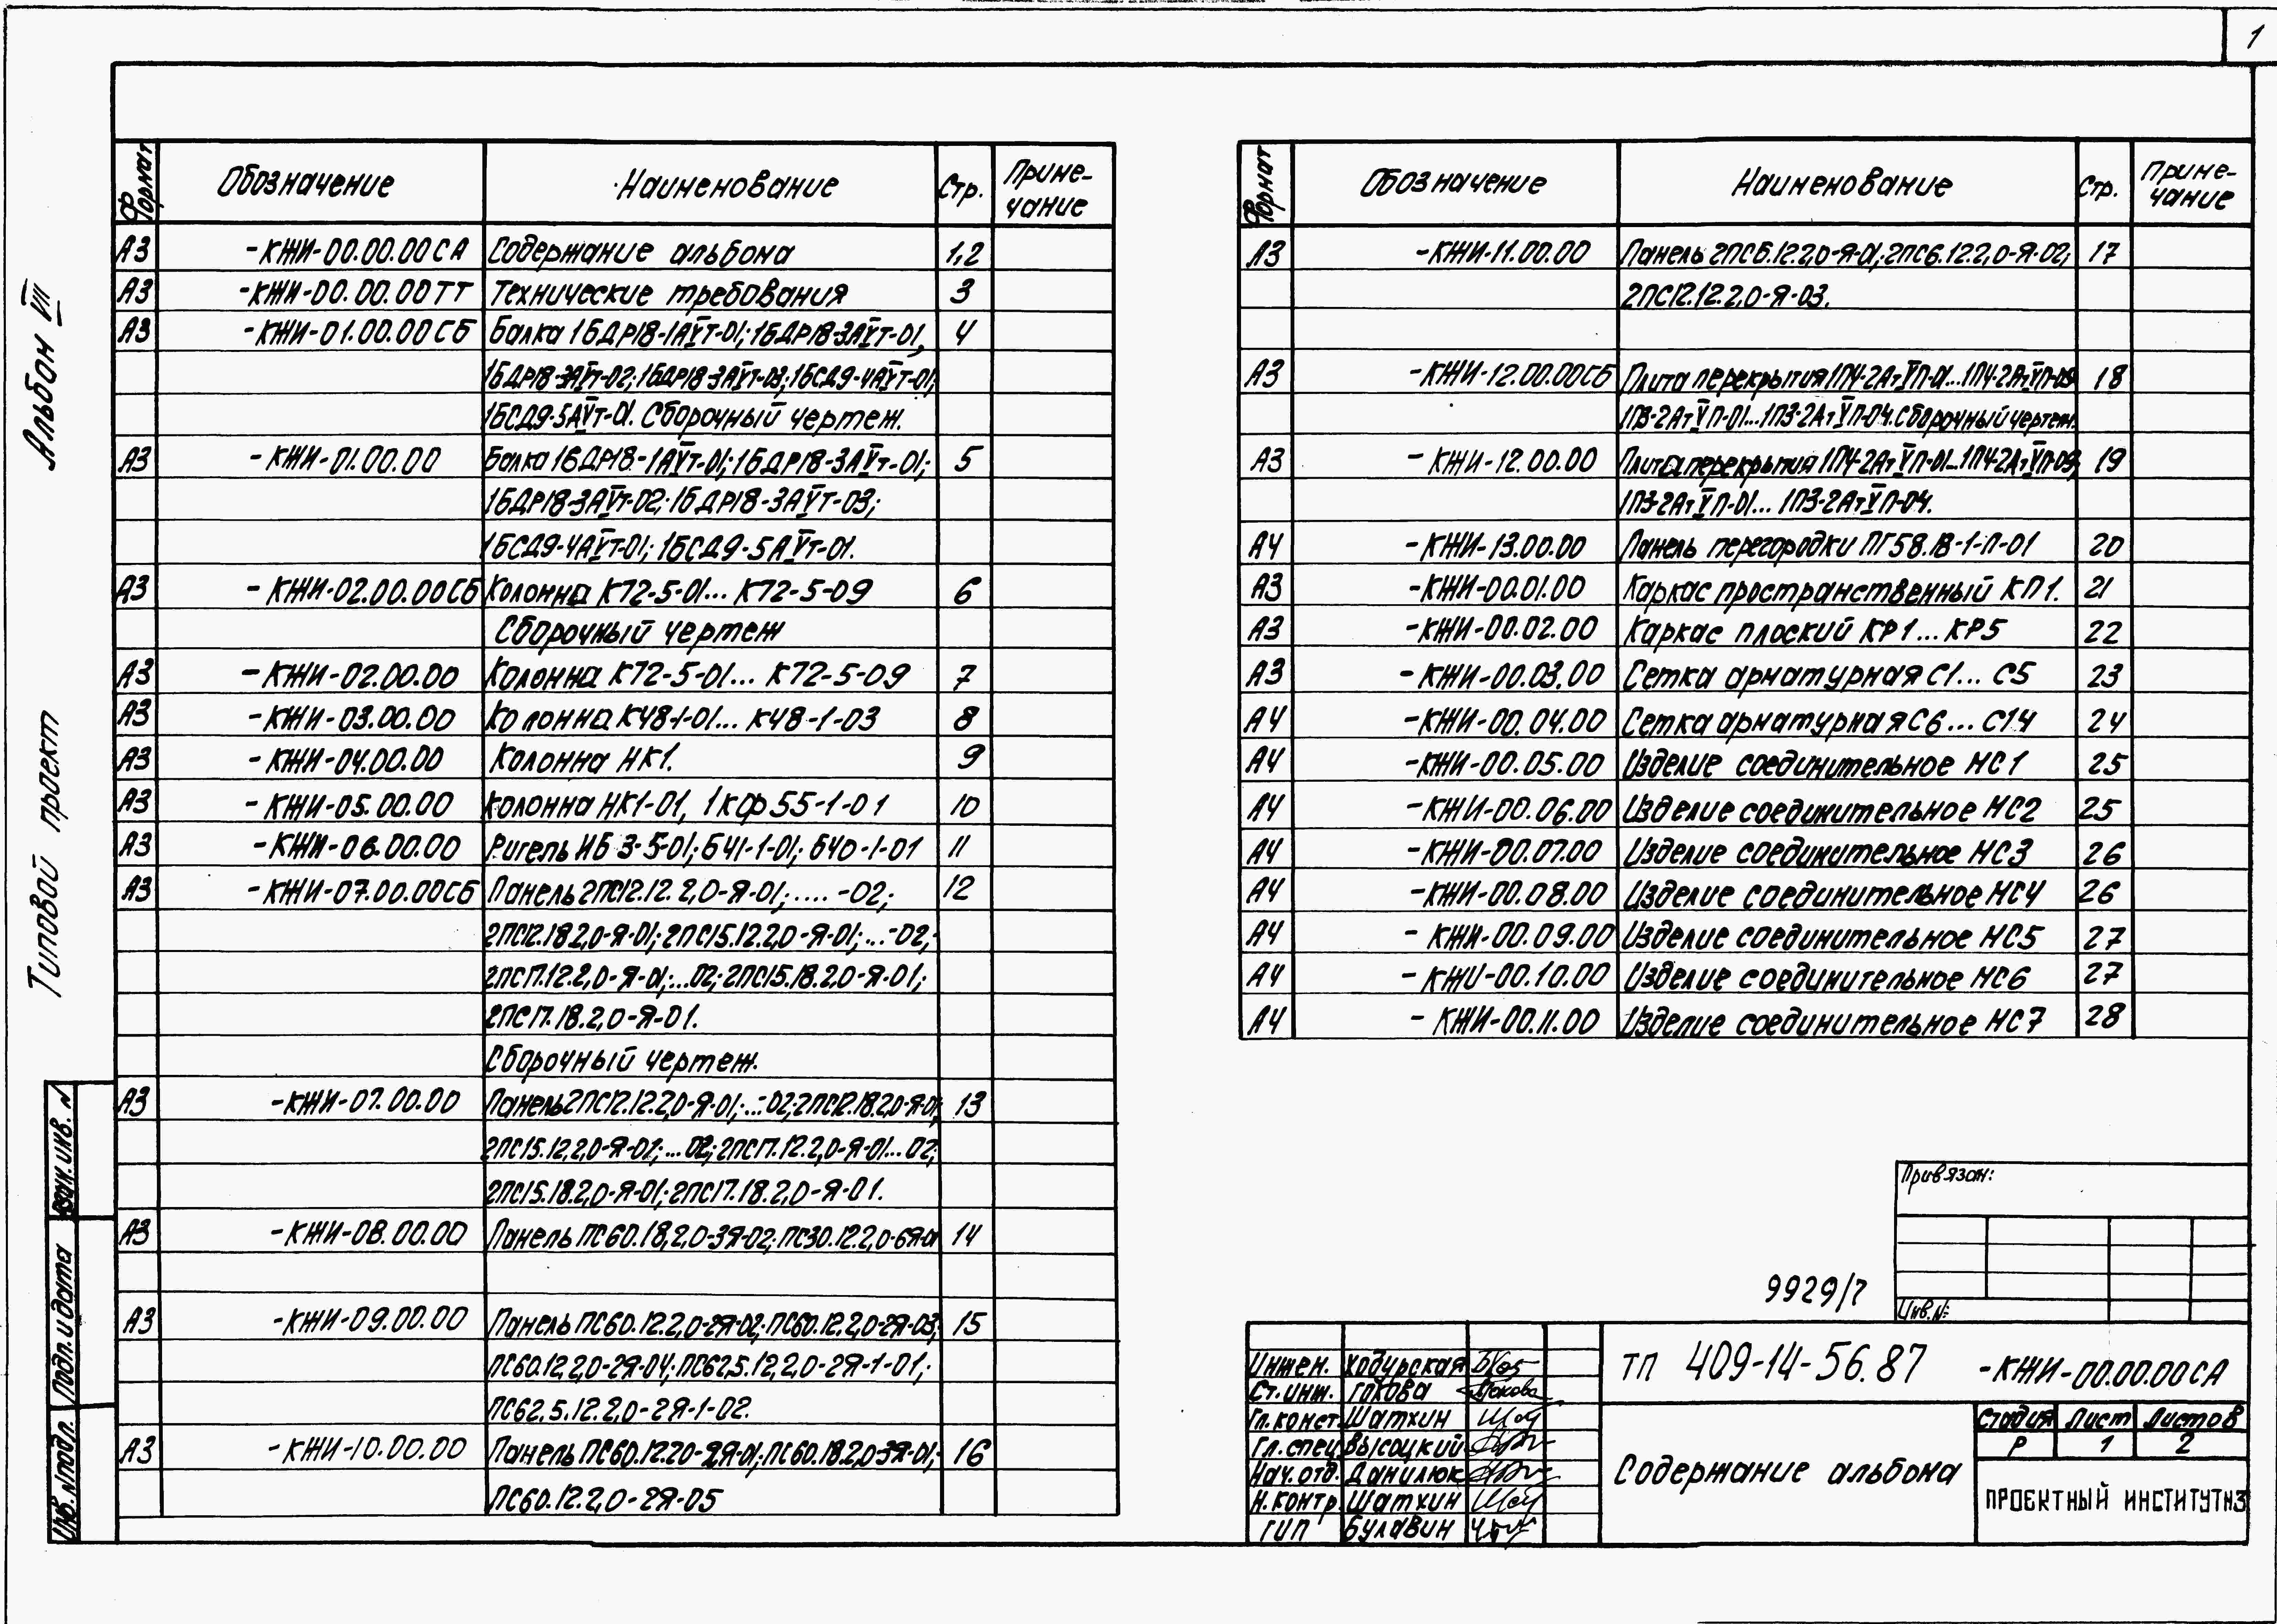 1
Альбом VII
Типовой проект
Формат Обозначение Наименование Стр. Приме-
чание
А3 -КЖИ-00.00.00СА Содержание альбома 1,2
А3 -КЖИ-00.00.00ТТ Технические требования 3
А3 -КЖИ-01.00.00СБ Балка 1БДР18-1АVТ-01; 1БДР18-3АVТ-01,
4
1БДР18-3АVТ-02; 1БДР18-3АVТ-03; 1БСД9-4АVТ-01;
1БСД9-5АVТ-01. Сборочный чертеж.
А3 -КЖИ-01.00.00 Балка 1БДР18-1АVТ-01; 1БДР18-3АVТ-01; 5
1БДР18-3АVТ-02; 1БДР18-3АVТ-03;
1БСД9-4АVТ-01; 1БСД9-5АVТ-01.
А3 -КЖИ-02.00.00СБ Колонна К72-5-01... К72-5-09 6
Сборочный чертеж
А3 -КЖИ-02.00.00 Колонна К72-5-01... К72-5-09 7
А3 -КЖИ-03.00.00 Колонна К48-1-01... К48-1-03 8
А3 -КЖИ-04.00.00 Колонна НК1. 9
А3 -КЖИ-05.00.00 Колонна НК1-01, 1КФ55-1-01 10
А3 -КЖИ-06.00.00 Ригель ИБ 3-5-01; Б41-1-01; Б40-1-01 11
А3 -КЖИ-07.00.00СБ Панель 2ПС12.12.2,0-Я-01; .... -02; 12
2ПС12.18.2,0-Я-01; 2ПС15.12.2,0-Я-01; ...-02;
2ПС17.12.2,0-Я-01; ...02; 2ПС15.18.2,0-Я-01;
2ПС17.18.2,0-Я-01.
Сборочный чертеж.
А3 -КЖИ-07.00.00 Панель 2ПС12.12.2,0-Я-01; ...-02; 2ПС12.18.2,0-Я-01; 13
2ПС15.12.2,0-Я-01; ...02; 2ПС17.12.2,0-Я-01...02;
2ПС15.18.2,0-Я-01; 2ПС17.18.2,0-Я-01.
А3 -КЖИ-08.00.00 Панель ПС60.18.2,0-3Я-02; ПС30.12.2,0-6Я-01 14
А3 -КЖИ-09.00.00 Панель ПС60.12.2,0-2Я-02; ПС60.12.2,0-2Я-03; 15
ПС60.12.2,0-2Я-04; ПС62,5.12.2,0-2Я-1-01;
ПС62,5.12.2,0-2Я-1-02.
А3 -КЖИ-10.00.00 Панель ПС60.12.2,0-2Я-01; ПС60.18.2,0-3Я-01; 16
ПС60.12.2,0-2Я-05
Формат Обозначение Наименование Стр. Приме-
чание
А3 -КЖИ-11.00.00 Панель 2ПС6.12.2,0-Я-01; 2ПС6.12.2,0-Я-02; 17
2ПС12.12.2,0-Я-03.
А3 -КЖИ-12.00.00СБ Плита перекрытия 1П4-2АтVП-01...1П4-2АтVП-09 18
1П3-2АтVП-01...1П3-2АтVП-04. Сборочный чертеж.
А3 -КЖИ-12.00.00 Плита перекрытия 1П4-2АтVП-01...1П4-2АтVП-09; 19
1П3-2АтVП-01... 1П3-2АтVП-04.
А4 -КЖИ-13.00.00 Панель перегородки ПГ58.18-1-П-01 20
А3 -КЖИ-00.01.00 Каркас пространственный КП1. 21
А3 -КЖИ-00.02.00 Каркас плоский КР1...КР5 22
А3 -КЖИ-00.03.00 Сетка арматурная С1... С5 23
А4 -КЖИ-00.04.00 Сетка арматурная С6... С14 24
А4 -КЖИ-00.05.00 Изделие соединительное МС1 25
А4 -КЖИ-00.06.00 Изделие соединительное МС2 25
А4 -КЖИ-00.07.00 Изделие соединительное МС3 26
А4 -КЖИ-00.08.00 Изделие соединительное МС4 26
А4 -КЖИ-00.09.00 Изделие соединительное МС5 27
А4 -КЖИ-00.10.00 Изделие соединительное МС6 27
А4 -КЖИ-00.11.00 Изделие соединительное МС7 28
Взам. инв. N
Подп. и дата
Инв. N подл.
Привязан:
Инв. №
9929/7
Инжен. Ходурская
Ст. инж. Гокова
Гл. конст. Шатхин
Гл. спец. Высоцкий
Нач. отд. Данилюк
Н. контр. Шатхин
ГИП Булавин
ТП 409-14-56.87 -КЖИ-00.00.00СА
Содержание альбома
Стадия Лист Листов
Р 1 2
ПРОЕКТНЫЙ ИНСТИТУТ№3